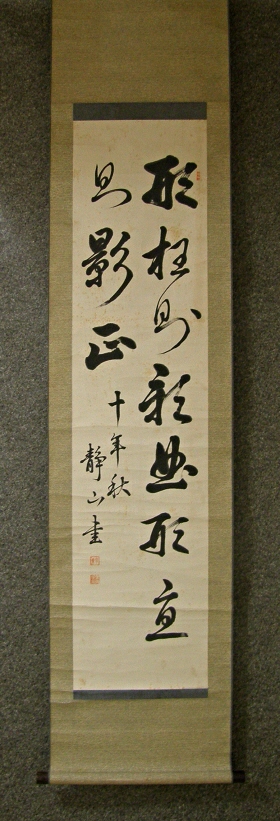 形枉則影曲形直
則影正
十年秋
静山書